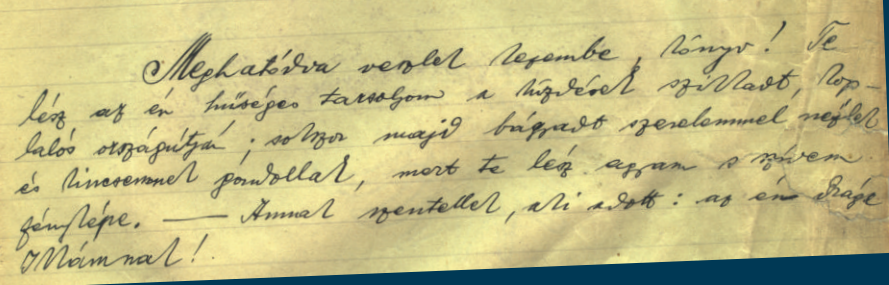 Meghatódva veszlek kezembe, könyv! Te
lész az én hűséges társalgóm a küzdések szikladt, kop-
lalós országútján; sokszor majd bágyadt szerelemmel nézlek
és kincsemnek gondollak, mert te lész agyam s szívem
fényképe. — Annak szentellek, aki adott: az én drága
Mámnak!